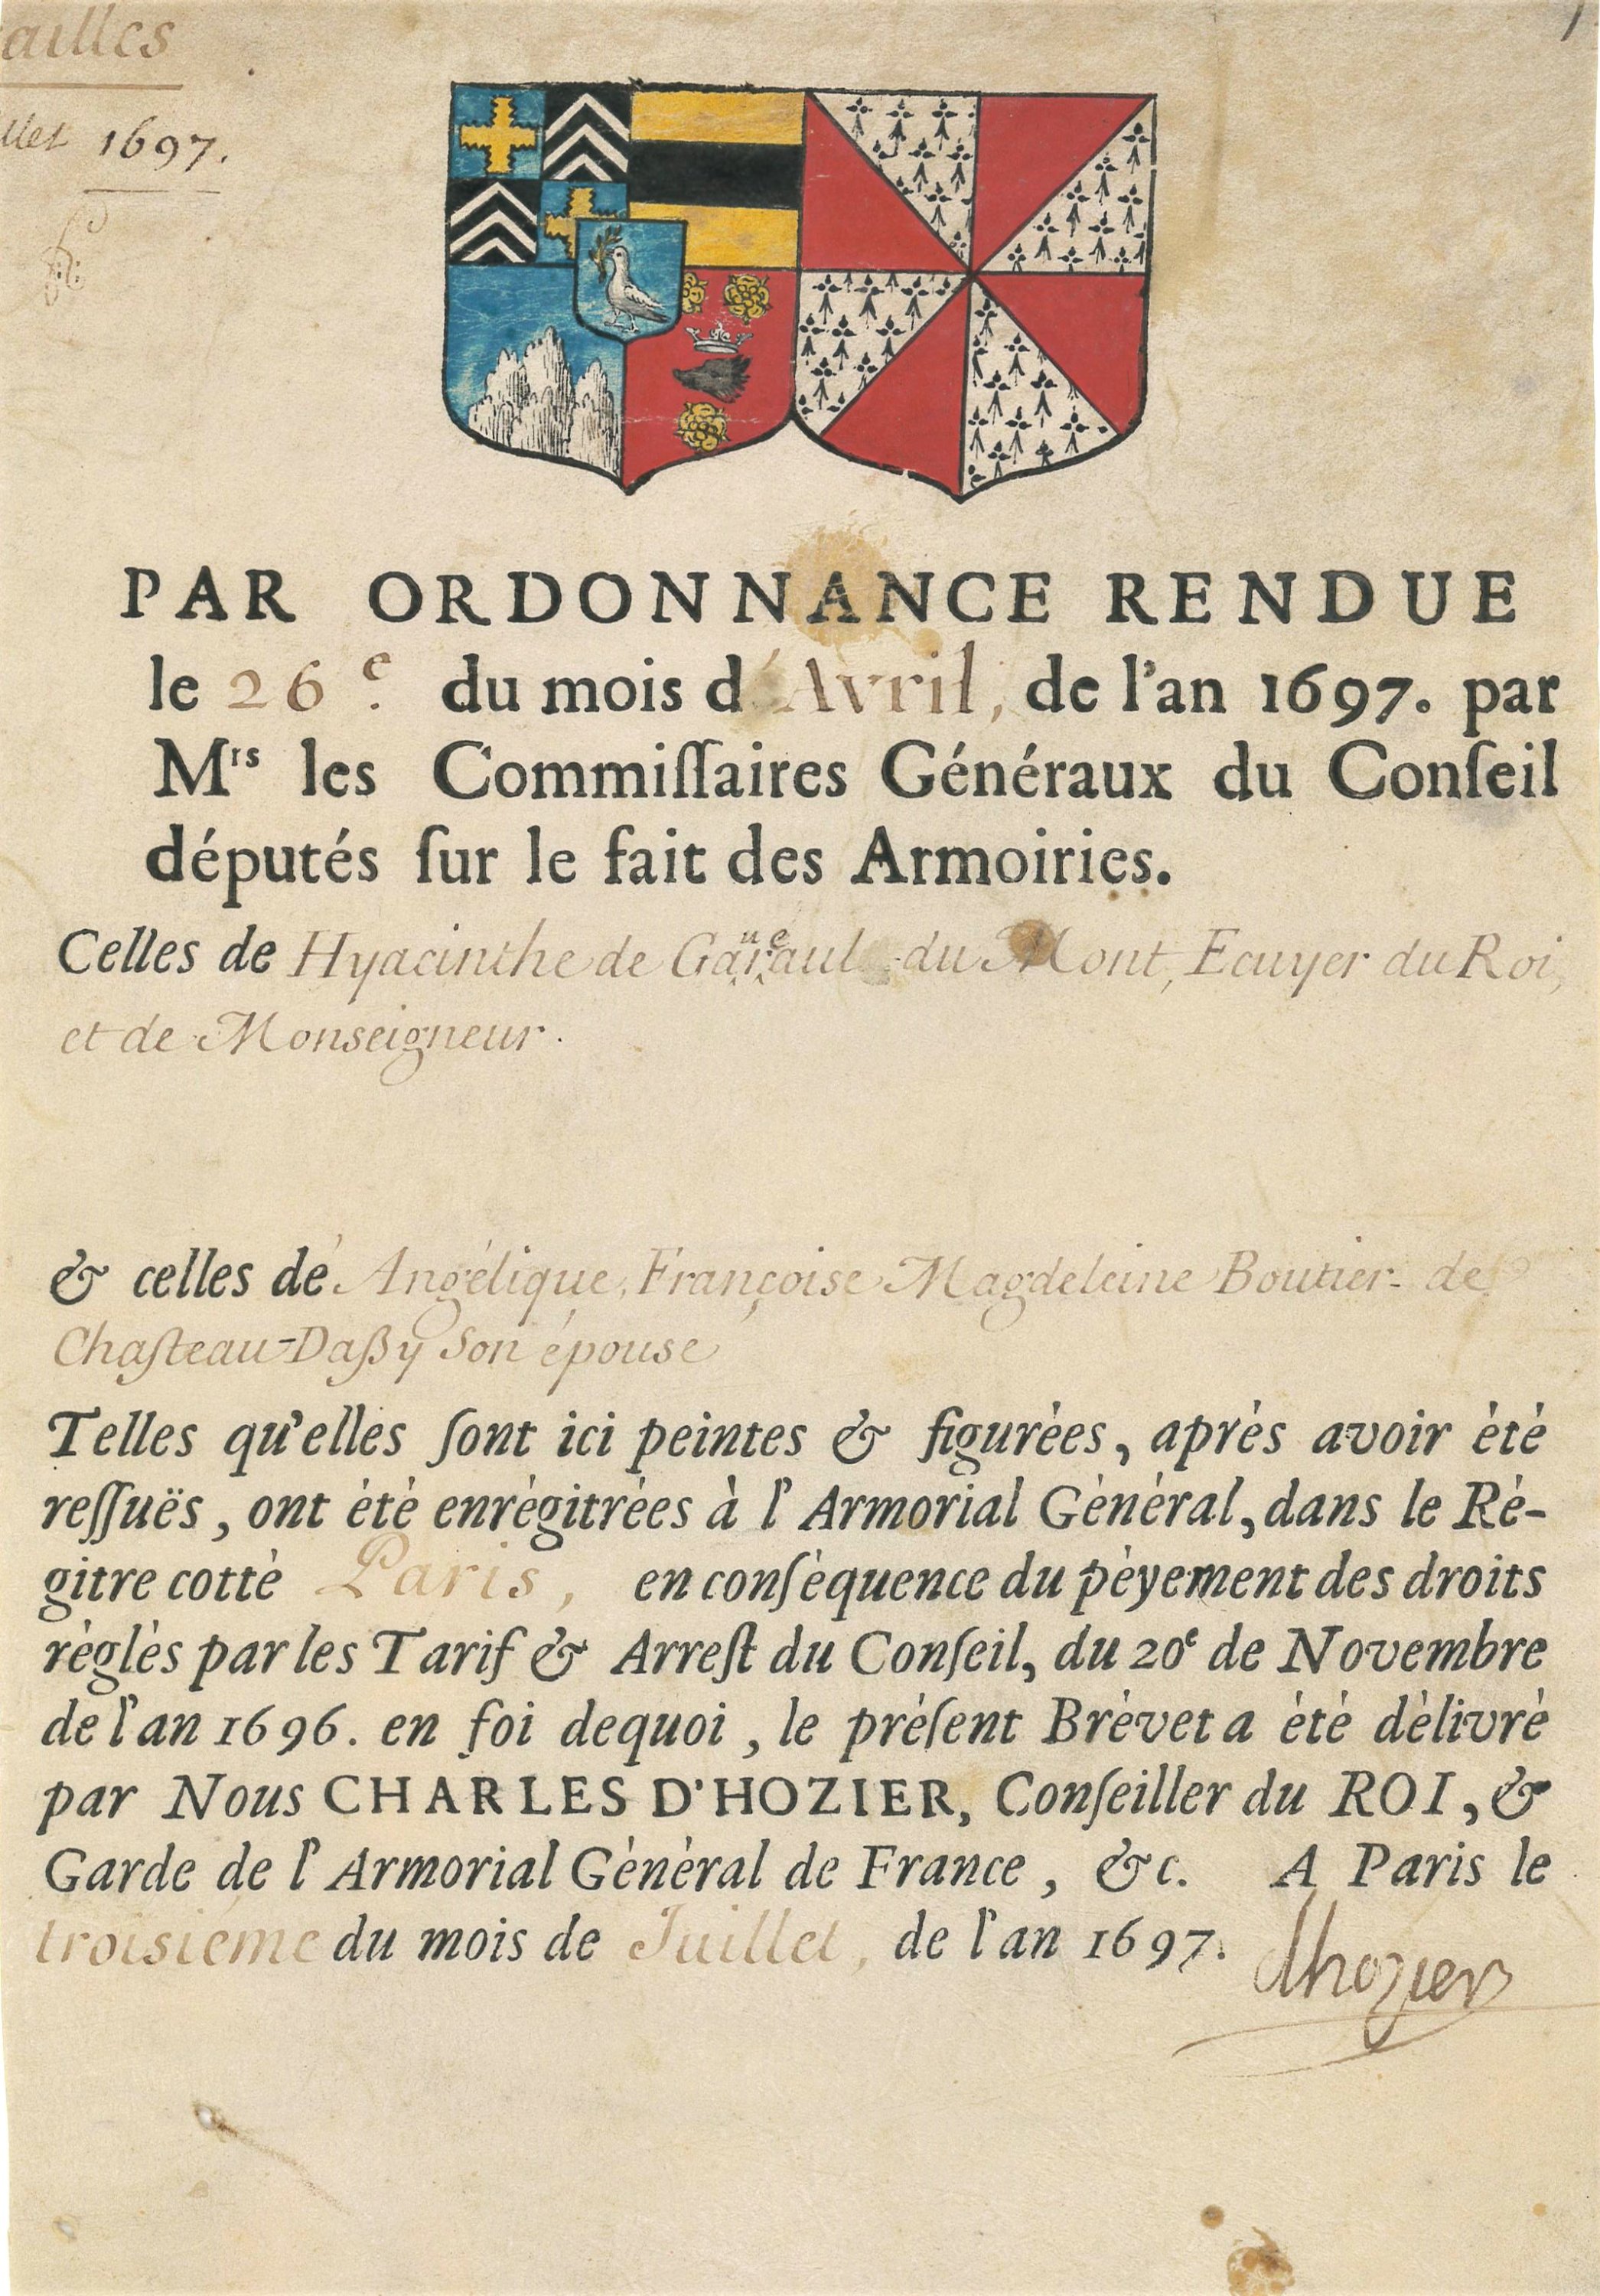 ailles
llet 1697.
1
PAR ORDONNANCE RENDUE
le 26.e du mois d'Avril, de l'an 1697. par
Mrs les Commiſſaires Généraux du Conſeil
députés ſur le fait des Armoiries.
Celles de Hyacinthe de du Mont, Ecuyer du Roi,
et de Monseigneur.
& celles de Angélique, Françoise Magdeleine Boutier de
Chaſteau-Daßy Son épouse
Telles qu'elles ſont ici peintes & figurèes, après avoir ètè
reſſuës, ont ètè enrègitrèes à l'Armorial Gènèral, dans le Rè-
gitre cottè Paris, en conſèquence du pèyement des droits
règlès par les Tarif & Arreſt du Conſeil, du 20e de Novembre
de l'an 1696. en foi dequoi, le prèſent Brèvet a ètè dèlivrè
par Nous CHARLES D'HOZIER, Conſeiller du ROI, &
Garde de l'Armorial Gènèral de France, &c. A Paris le
troisieme du mois de Juillet, de l'an 1697.
dhozier